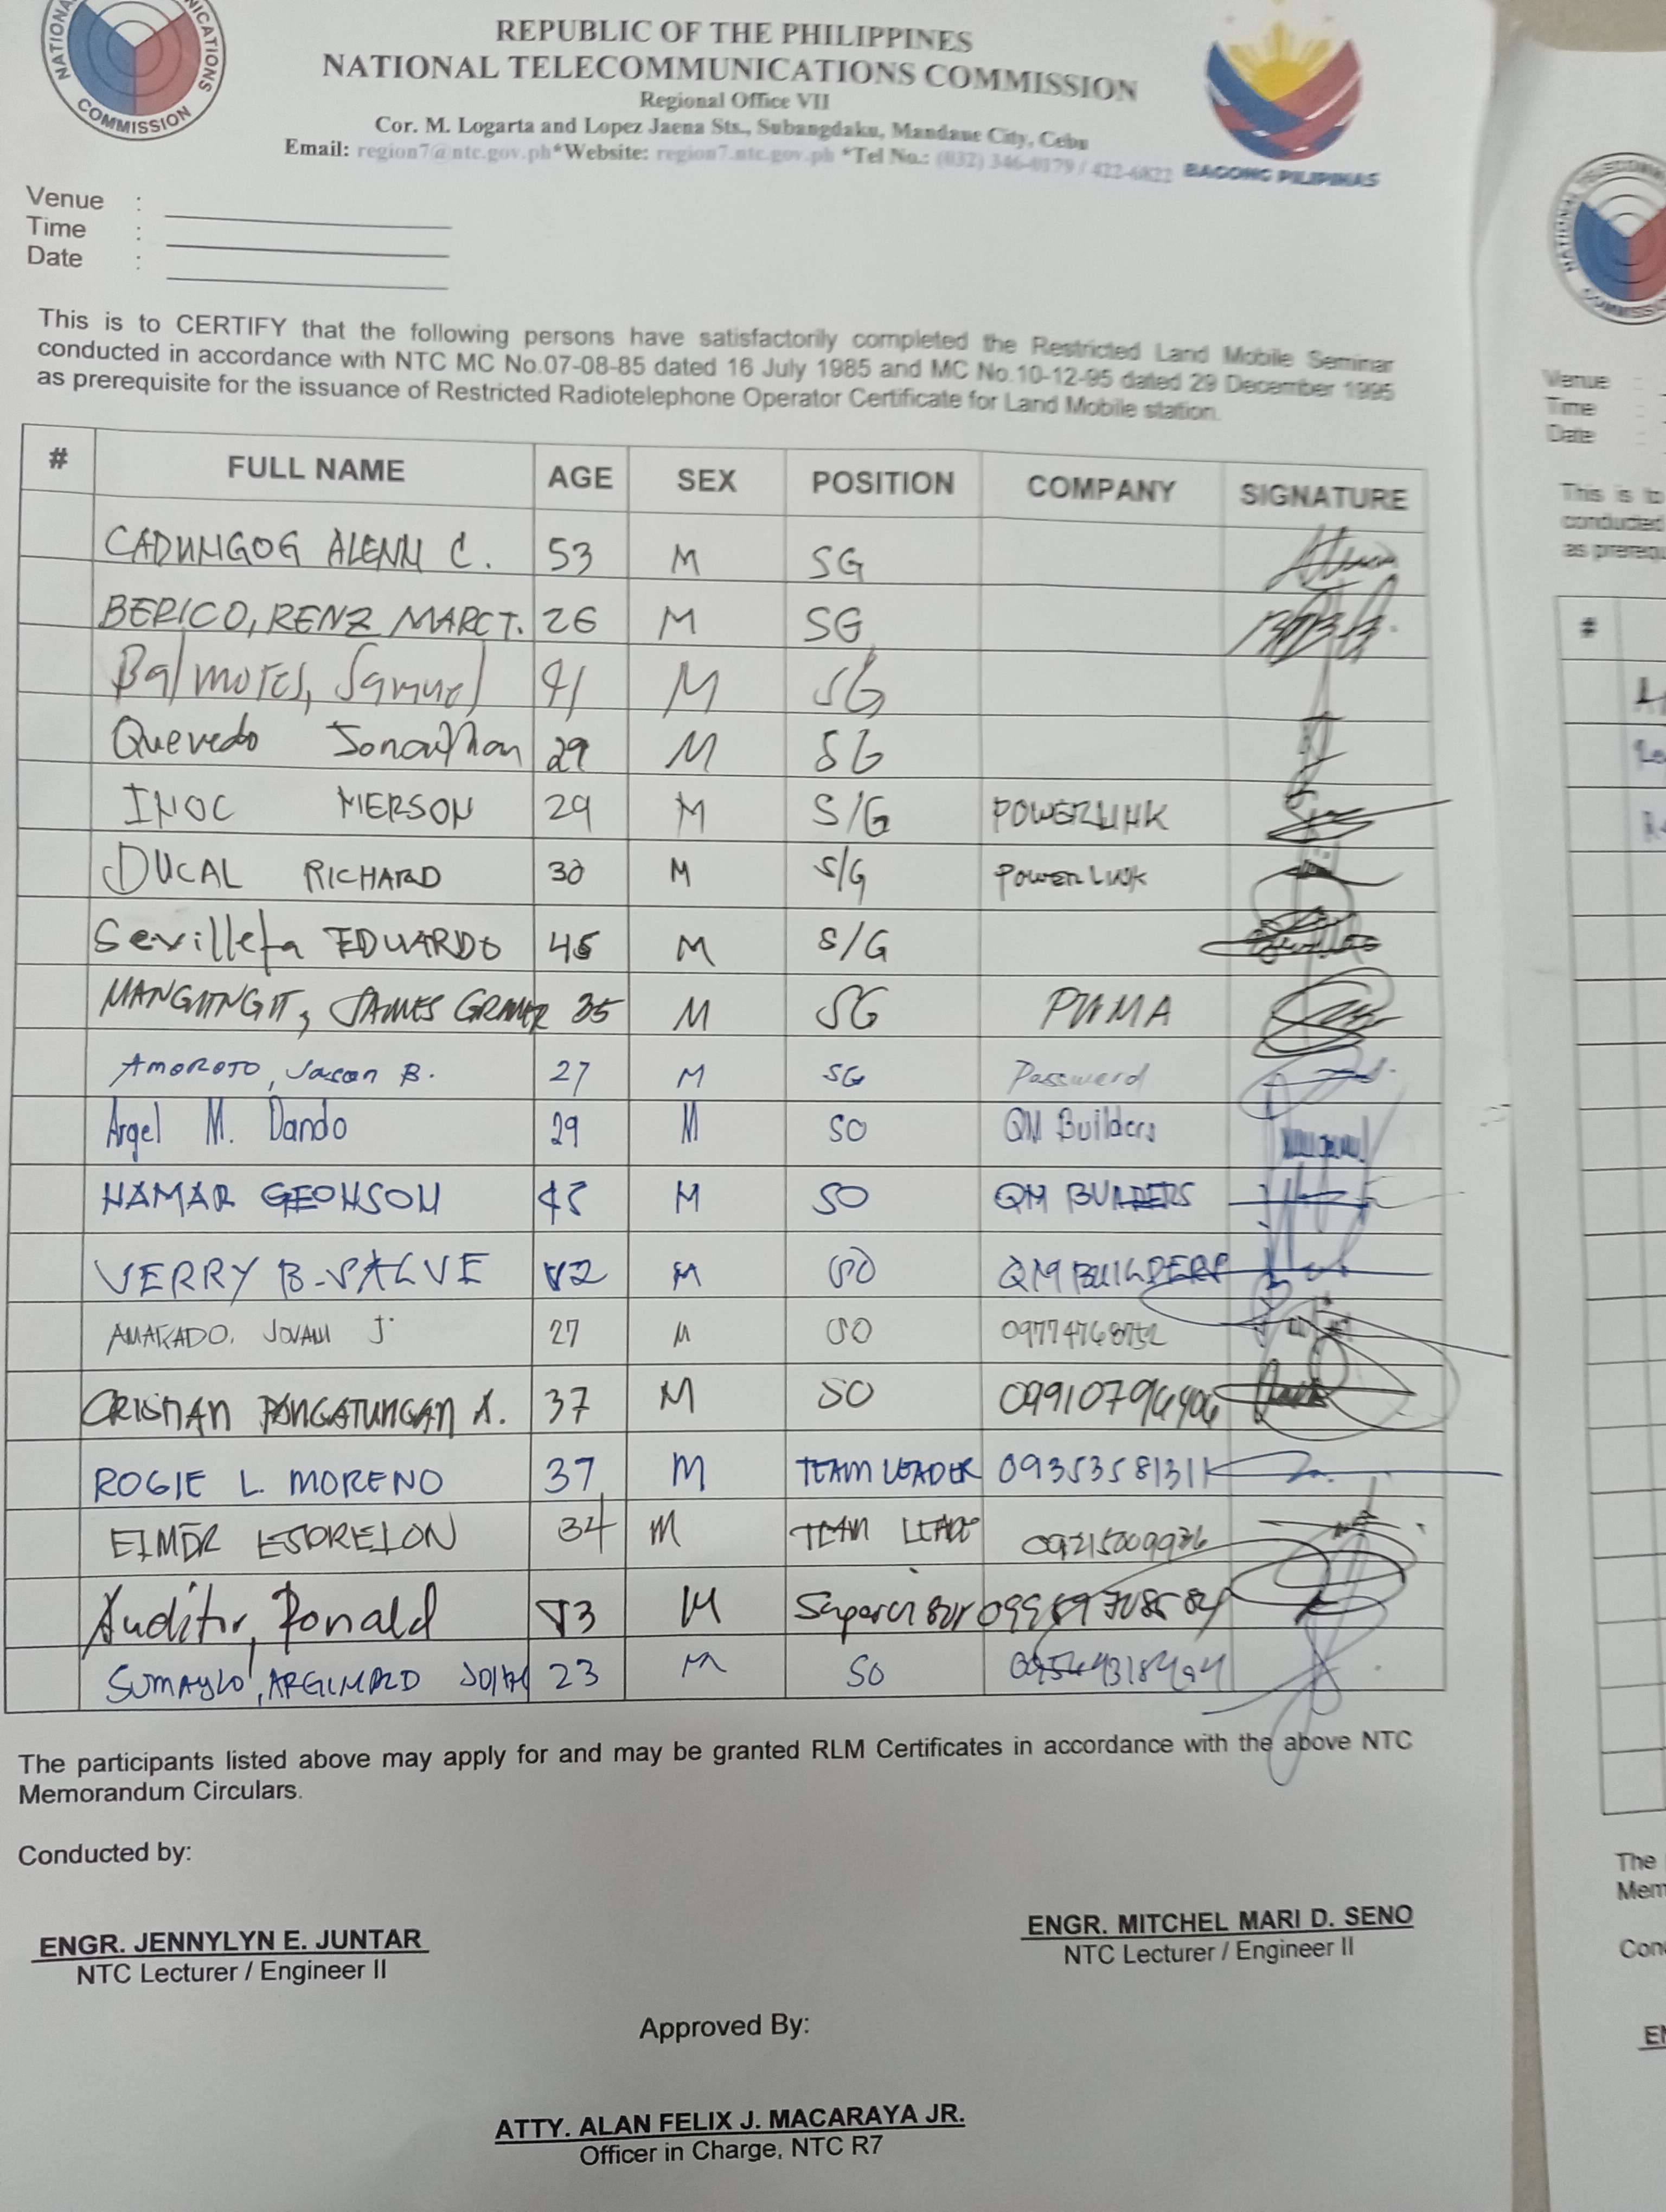 REPUBLIC OF THE PHILIPPINES
NATIONAL TELECOMMUNICATIONS COMMISSION
Regional Office VII
Cor. M. Logarta and Lopez Jaena Sts., Subangdaku, Mandaue City, Cebu
Email: region7@ntc.gov.ph*Website: region7.ntc.gov.ph *Tel No.: (032) 346-0179 / 422-6822
BAGONG PILIPINAS
COMMISSION
Venue :
Time :
Date :
This is to CERTIFY that the following persons have satisfactorily completed the Restricted Land Mobile Seminar
conducted in accordance with NTC MC No.07-08-85 dated 16 July 1985 and MC No.10-12-95 dated 29 December 1995
as prerequisite for the issuance of Restricted Radiotelephone Operator Certificate for Land Mobile station.
# FULL NAME AGE SEX POSITION COMPANY SIGNATURE
CADUNGOG ALENN C. 53 M SG
BERICO, RENZ MARC T. 26 M SG
Balmores, Samuel 41 M SG
Quevedo Jonathan 29 M SG
INOC MERSON 29 M S/G POWERLINK
DUCAL RICHARD 30 M S/G POWERLINK
Sevilleta EDUARDO M S/G
JAMES 35 M SG PUMA
AMOROTO, Jason B. 27 M SG Password
Argel M. Dando 29 M SO QM Builders
HAMAR GEOHSON 45 M SO QM BUILDERS
VERRY B. SALVE M SO QM BUILDERS
JOVANI J. 27 M SO
CRISTIAN A. 37 M SO
ROGIE L. MORENO 37 M TEAM LEADER 09353581311
34 M TEAM
Auditor, Ronald M Supervisor
SUMAYLO, 23 M SO
The participants listed above may apply for and may be granted RLM Certificates in accordance with the above NTC
Memorandum Circulars.
Conducted by:
ENGR. JENNYLYN E. JUNTAR
NTC Lecturer / Engineer II
ENGR. MITCHEL MARI D. SENO
NTC Lecturer / Engineer II
Approved By:
ATTY. ALAN FELIX J. MACARAYA JR.
Officer in Charge, NTC R7
Venue :
Time :
Date :
This is to
conducted
#
The